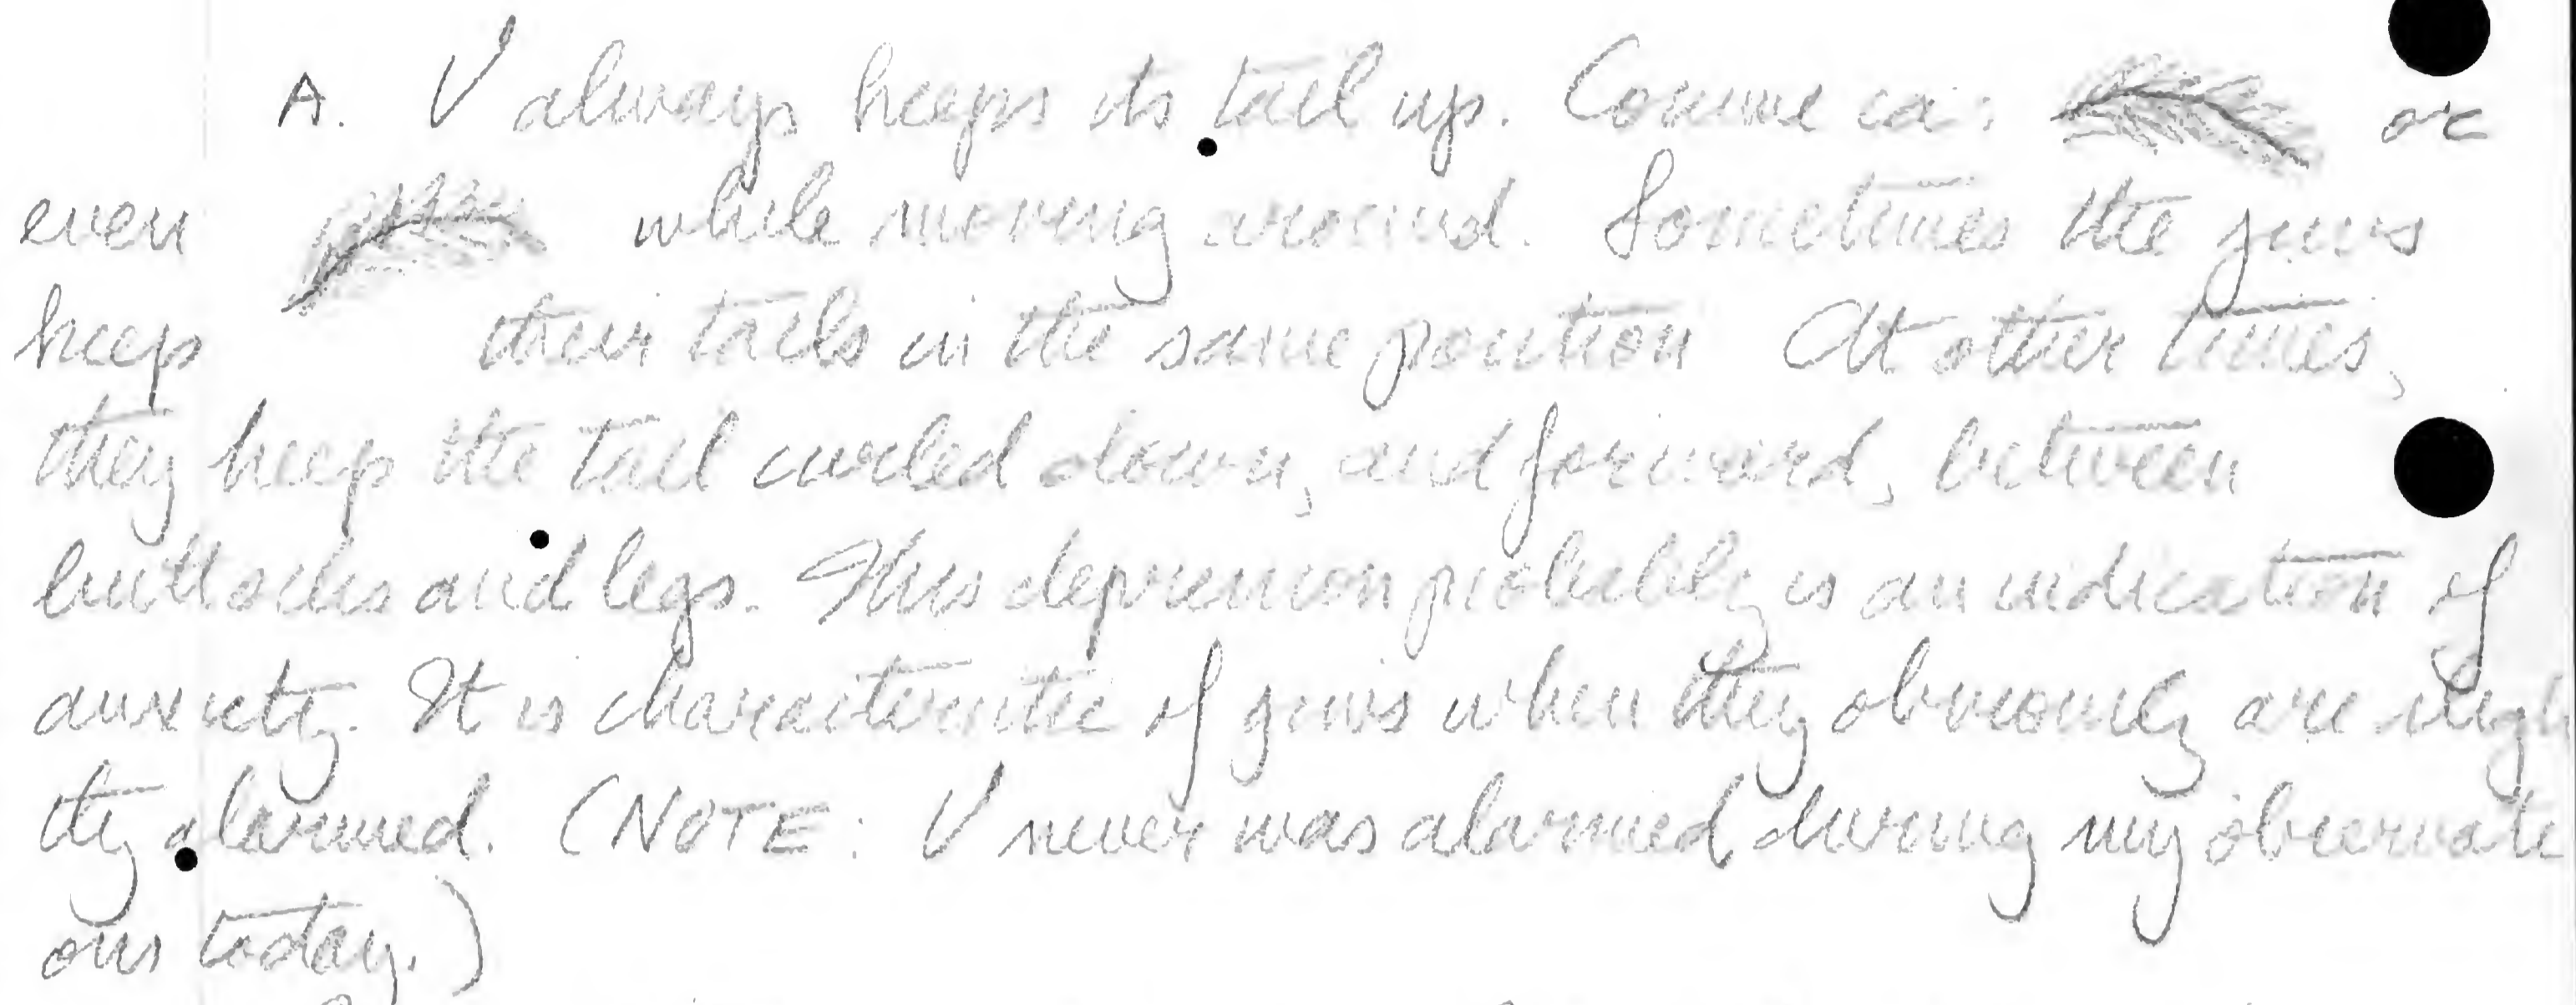 A. V always keeps its tail up. Comme ca: or
even while moving around. Sometimes the juvs
keep their tails in the same position At other times,
they keep the tail curled down, and forward, between
buttocks and legs. This depression probably is an indication of
anxiety. It is characteristic of juvs when they obviously are sligh
tly alarmed. (NOTE: V never was alarmed during my observati
ons today.)